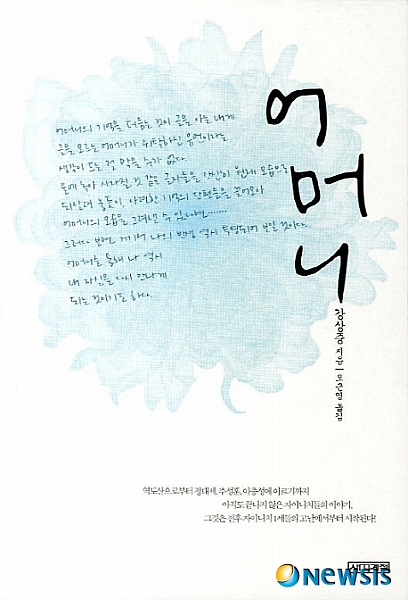 어머니
강상중 지음 | 오근영 옮김
어머니의 기억을 더듬는 것이 글을 아는 내게
글을 모르는 어머니가 위탁하신 유언이라는
생각이 드는 걸 막을 수가 없다.
물에 녹아 사라진 것 같은 글자들을 당신이 원래 모습으로
되살려 놓듯이, 아련한 기억의 단편들을 모아
어머니의 모습을 그려낼 수 있다면……
그러자 반면 거기에 나의 반생 역시 투영되어 보일 것이다.
어머니를 통해 나 역시
내 자신을 다시 만나게
되는 것이기도 하다.
역도산으로부터 정대세, 추성훈, 이충성에 이르기까지
아직도 끝나지 않은 자이니치들의 이야기,
그것은 전후 자이니치 1세들의 고난에서부터 시작된다!
사계절
Newsis